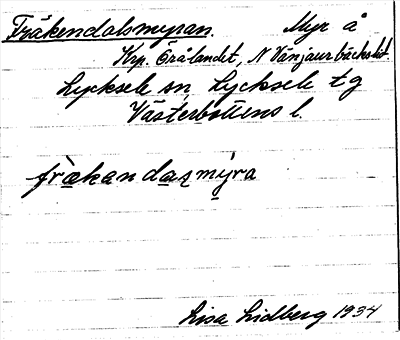 Fräkendalsmyran. Myr å
Krp. Örålandet, N Vänjaurbäckslid.
Lycksele sn, Lycksele tg
Västerbottens l.
frækandasmyra
Lisa Lidberg 1934